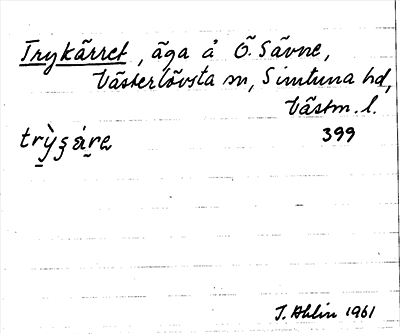 Trykärret, äga å Ö. Sävne,
Västerlövsta sn, Simtuna hd,
Västm. l.
trỳʂáre 399
J. Ahlin 1961